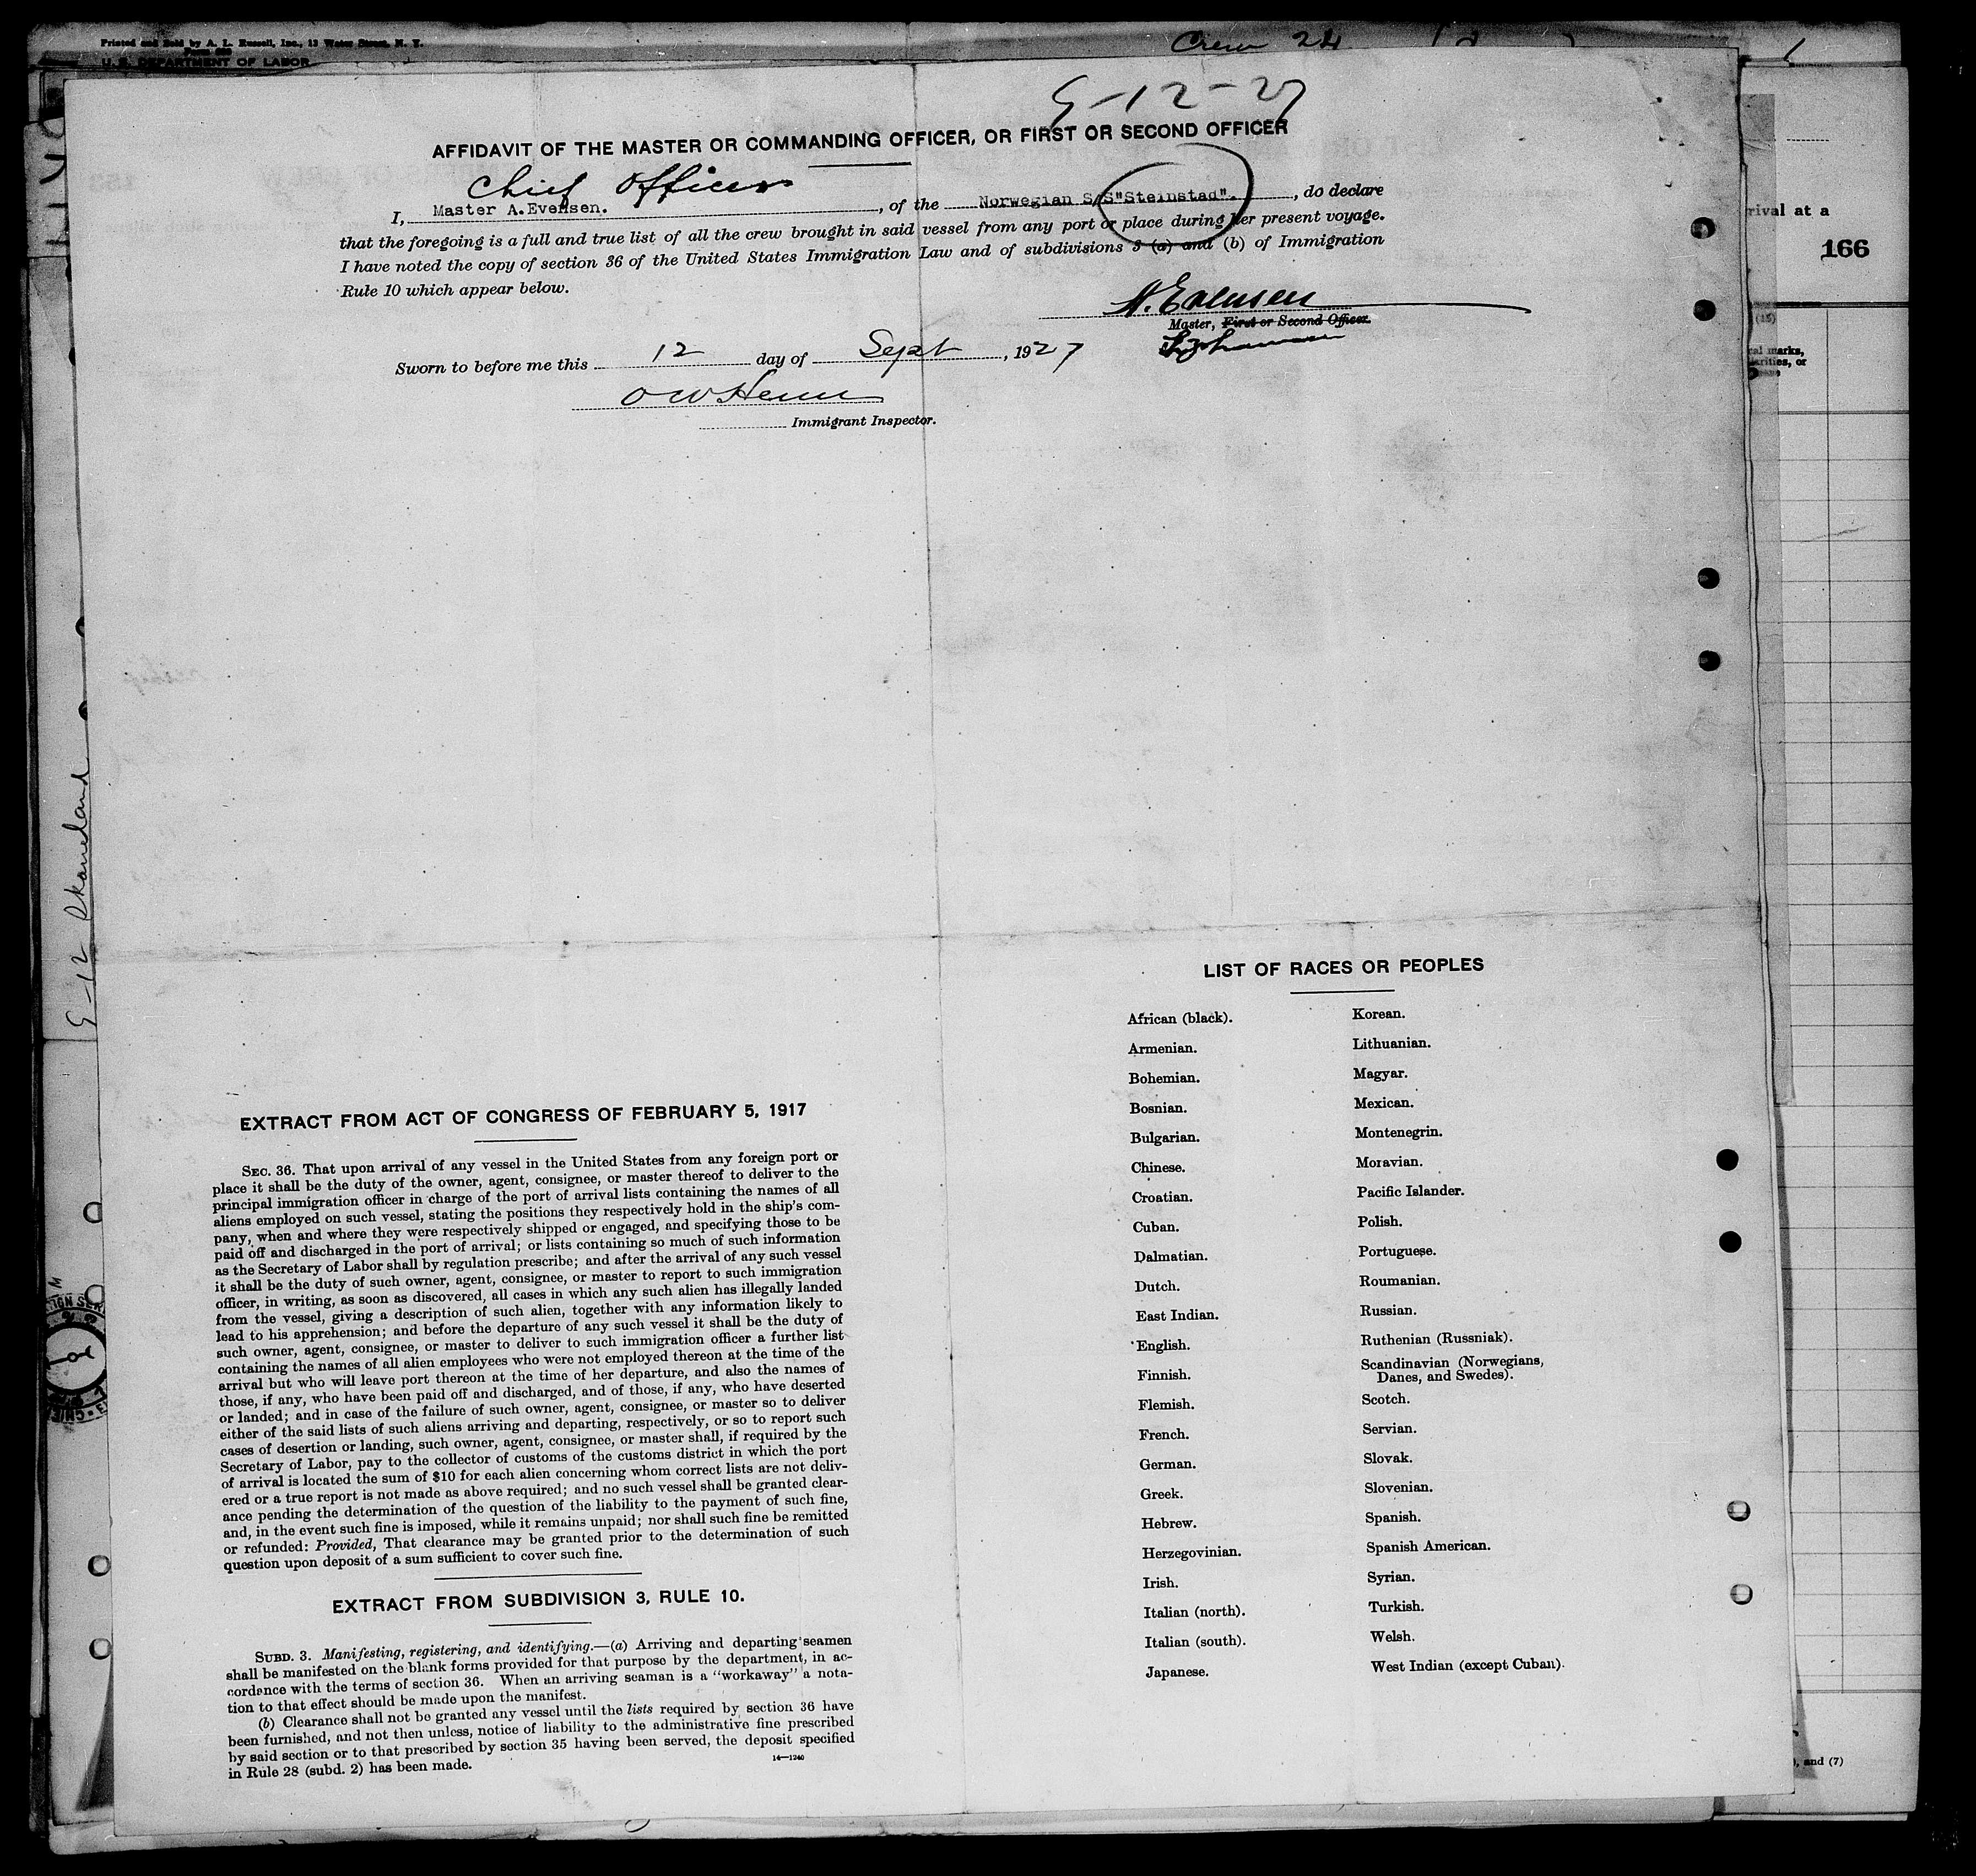 Printed and Sold by A. L. Russell, Inc., 12 Water Street, N. Y.
U. S. DEPARTMENT OF LABOR
Crew 24
9-12-27
AFFIDAVIT OF THE MASTER OR COMMANDING OFFICER, OR FIRST OR SECOND OFFICER
Chief Officer
I, Master A.Evensen. , of the Norwegian S/S"Steinstad". , do declare
that the foregoing is a full and true list of all the crew brought in said vessel from any port or place during her present voyage.
I have noted the copy of section 36 of the United States Immigration Law and of subdivisions 3 (a) and (b) of Immigration
Rule 10 which appear below.
A. Evensen
Master, First or Second Officer.
Sworn to before me this 12 day of Sept , 1927
Immigrant Inspector.
rival at a
166
(15)
cal marks,
arities, or
9-12 Skaneland
LIST OF RACES OR PEOPLES
African (black).
Armenian.
Bohemian.
Bosnian.
Bulgarian.
Chinese.
Croatian.
Cuban.
Dalmatian.
Dutch.
East Indian.
English.
Finnish.
Flemish.
French.
German.
Greek.
Hebrew.
Herzegovinian.
Irish.
Italian (north).
Italian (south).
Japanese.
Korean.
Lithuanian.
Magyar.
Mexican.
Montenegrin.
Moravian.
Pacific Islander.
Polish.
Portuguese.
Roumanian.
Russian.
Ruthenian (Russniak).
Scandinavian (Norwegians,
Danes, and Swedes).
Scotch.
Servian.
Slovak.
Slovenian.
Spanish.
Spanish American.
Syrian.
Turkish.
Welsh.
West Indian (except Cuban).
EXTRACT FROM ACT OF CONGRESS OF FEBRUARY 5, 1917
SEC. 36. That upon arrival of any vessel in the United States from any foreign port or
place it shall be the duty of the owner, agent, consignee, or master thereof to deliver to the
principal immigration officer in charge of the port of arrival lists containing the names of all
aliens employed on such vessel, stating the positions they respectively hold in the ship's com-
pany, when and where they were respectively shipped or engaged, and specifying those to be
paid off and discharged in the port of arrival; or lists containing so much of such information
as the Secretary of Labor shall by regulation prescribe; and after the arrival of any such vessel
it shall be the duty of such owner, agent, consignee, or master to report to such immigration
officer, in writing, as soon as discovered, all cases in which any such alien has illegally landed
from the vessel, giving a description of such alien, together with any information likely to
lead to his apprehension; and before the departure of any such vessel it shall be the duty of
such owner, agent, consignee, or master to deliver to such immigration officer a further list
containing the names of all alien employees who were not employed thereon at the time of the
arrival but who will leave port thereon at the time of her departure, and also the names of
those, if any, who have been paid off and discharged, and of those, if any, who have deserted
or landed; and in case of the failure of such owner, agent, consignee, or master so to deliver
either of the said lists of such aliens arriving and departing, respectively, or so to report such
cases of desertion or landing, such owner, agent, consignee, or master shall, if required by the
Secretary of Labor, pay to the collector of customs of the customs district in which the port
of arrival is located the sum of $10 for each alien concerning whom correct lists are not deliv-
ered or a true report is not made as above required; and no such vessel shall be granted clear-
ance pending the determination of the question of the liability to the payment of such fine,
and, in the event such fine is imposed, while it remains unpaid; nor shall such fine be remitted
or refunded: Provided, That clearance may be granted prior to the determination of such
question upon deposit of a sum sufficient to cover such fine.
EXTRACT FROM SUBDIVISION 3, RULE 10.
SUBD. 3. Manifesting, registering, and identifying.—(a) Arriving and departing seamen
shall be manifested on the blank forms provided for that purpose by the department, in ac-
cordance with the terms of section 36. When an arriving seaman is a "workaway" a nota-
tion to that effect should be made upon the manifest.
(b) Clearance shall not be granted any vessel until the lists required by section 36 have
been furnished, and not then unless, notice of liability to the administrative fine prescribed
by said section or to that prescribed by section 35 having been served, the deposit specified
in Rule 28 (subd. 2) has been made.
14—1240
, and (7)